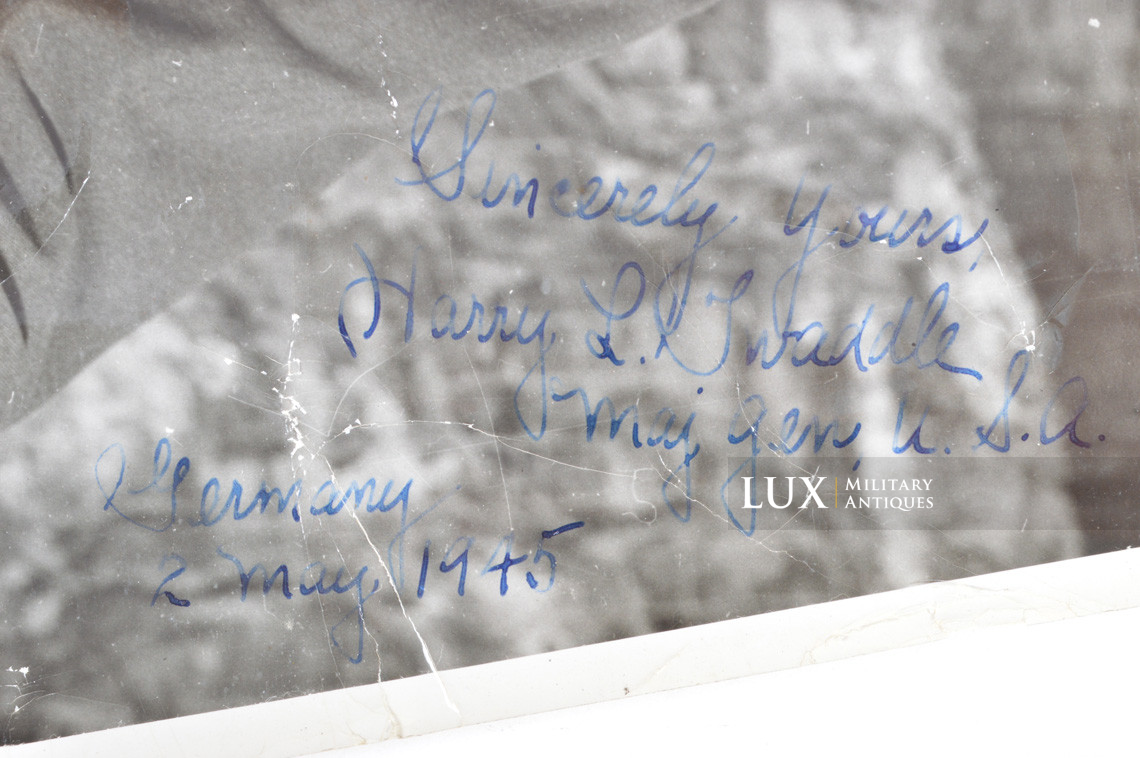 Sincerely Yours,
Harry L. Twaddle
Maj gen, U.S.A.
Germany
2 May 1945
LUX MILITARY ANTIQUES